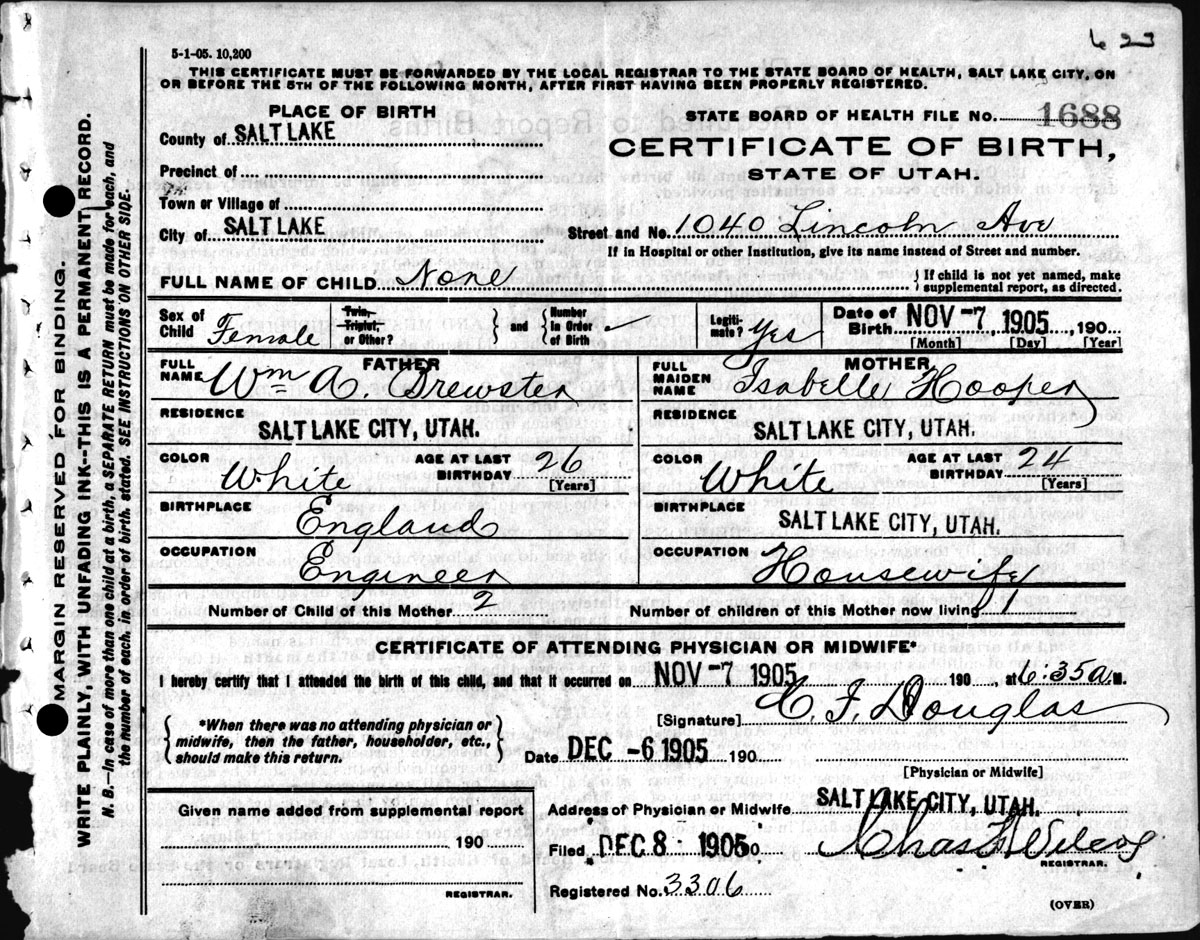 623
5-1-05. 10,200
THIS CERTIFICATE MUST BE FORWARDED BY THE LOCAL REGISTRAR TO THE STATE BOARD OF HEALTH, SALT LAKE CITY, ON
OR BEFORE THE 5TH OF THE FOLLOWING MONTH, AFTER FIRST HAVING BEEN PROPERLY REGISTERED.
PLACE OF BIRTH
County of SALT LAKE
Precinct of
Town or Village of
City of SALT LAKE
STATE BOARD OF HEALTH FILE NO. 1688
CERTIFICATE OF BIRTH,
STATE OF UTAH.
Street and No. 1040 Lincoln Ave
If in Hospital or other Institution, give its name instead of Street and number.
FULL NAME OF CHILD None
{ If child is not yet named, make
supplemental report, as directed.
Sex of Child Female
Twin, Triplet, or Other? } and { Number in Order of Birth
Legiti-mate? Yes
Date of Birth NOV -7 1905, 190
[Month] [Day] [Year]
FATHER
FULL NAME Wm A. Brewster
RESIDENCE
SALT LAKE CITY, UTAH.
COLOR White
AGE AT LAST BIRTHDAY 26
[Years]
BIRTHPLACE
England
OCCUPATION
Engineer
MOTHER
FULL MAIDEN NAME Isabelle Hooper
RESIDENCE
SALT LAKE CITY, UTAH.
COLOR White
AGE AT LAST BIRTHDAY 24
[Years]
BIRTHPLACE
SALT LAKE CITY, UTAH.
OCCUPATION
Housewife
Number of Child of this Mother 2
Number of children of this Mother now living 1
CERTIFICATE OF ATTENDING PHYSICIAN OR MIDWIFE*
I hereby certify that I attended the birth of this child, and that it occurred on NOV -7 1905 190, at 6:35 a.M.
{ *When there was no attending physician or
midwife, then the father, householder, etc.,
should make this return. }
[Signature] C. F. Douglas
Date DEC -6 1905 190
[Physician or Midwife]
Given name added from supplemental report
190
REGISTRAR.
Address of Physician or Midwife SALT LAKE CITY, UTAH.
Filed DEC 8 - 1905 190
Chas F. Wilcox
REGISTRAR.
Registered No. 3306
(OVER)
MARGIN RESERVED FOR BINDING.
WRITE PLAINLY, WITH UNFADING INK--THIS IS A PERMANENT RECORD.
N. B.—In case of more than one child at a birth, a SEPARATE RETURN must be made for each, and
the number of each, in order of birth, stated. SEE INSTRUCTIONS ON OTHER SIDE.